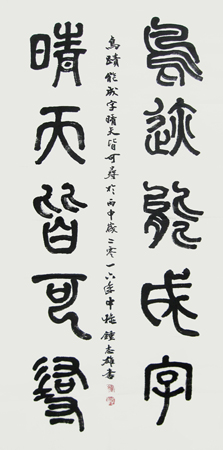 鳥迹能成字
鳥蹟能成字晴天皆可尋於丙申歲二零一六年中秋鍾志雄書
晴天皆可尋